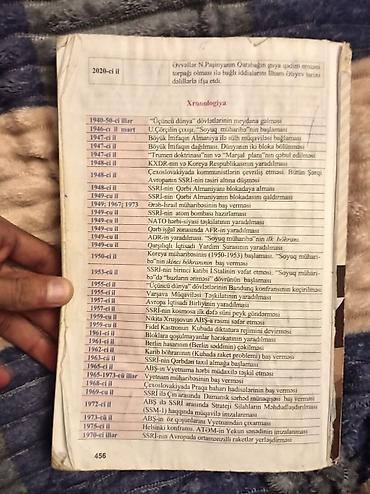 2020-ci il
Əvvəllər N.Paşinyanın Qarabağın guya qədim erməni
torpağı olması ilə bağlı iddialarını İlham Əliyev tarixi
dəlillərlə ifşa etdi.
Xronologiya
1940-50-ci illər "Üçüncü dünya" dövlətlərinin meydana gəlməsi
1946-cı il mart U.Çörçilin çıxışı, "Soyuq müharibə"nin başlanması
1947-ci il Böyük İmtifaqın Almaniya ilə sülh müqaviləsi bağlaması
1947-ci il Böyük İmtifaqın dağılması. Dünyanın iki bloka bölünməsi
1947-ci il "Trumen doktrinası"nın və "Marşal planı"nın qəbul edilməsi
1948-ci il KXDR-nın və Koreya Respublikasının yaradılması
1948-ci il Çexoslovakiyada kommunistlərin çevriliş etməsi. Bütün Şərqi
Avropanın SSRİ-nin təsiri altına düşməsi
1948-ci il SSRİ-nin Qərbi Almaniyanı blokadaya alması
1949-cu il SSRİ-nin Qərbi Almaniyanın blokadasını qaldırması
1949; 1967; 1973 Ərəb-İsrail müharibəsinin baş verməsi
1949-cu il SSRİ-nin atom bombası hazırlaması
1949-cu il NATO hərbi-siyasi təşkilatının yaradılması
1949-cu il Qərb işğal zonasında AFR-in yaradılması
1949-cu il ADR-in yaradılması. "Soyuq müharibə"nin ilk böhranı.
1949-cu il Qarşılıqlı İqtisadi Yardım Şurasının yaradılması
1950-ci il Koreya müharibəsinin (1950-1953) başlanması. "Soyuq mühari-
bə"nin ikinci böhranının baş verməsi
1953-cü il SSRİ-nin birinci katibi İ.Stalinin vəfat etməsi. "Soyuq mühari-
bə"də "buzların əriməsi" dövrünün başlanması
1955-ci il "Üçüncü dünya" dövlətlərinin Bandunq konfransının keçirilməsi
1955-ci il Varşava Müqaviləsi Təşkilatının yaradılması
1957-ci il Avropa İqtisadi Birliyinin yaradılması
1957-ci il SSRİ-nin kosmosa ilk dəfə süni peyk göndərməsi
1959-cu il Nikita Xruşşovun ABŞ-a rəsmi səfər etməsi
1959-cu il Fidel Kastronun Kubada diktatura rejimini devirməsi
1961-ci il Bloklara qoşulmayanlar hərəkatının yaradılması
1961-ci il Berlin hasarının (Berlin səddinin) çəkilməsi
1962-ci il Karib böhranının (Kubada raket problemi) baş verməsi
1963-cü il SSRİ-nin Qərbdən taxıl almağa başlaması
1965-ci il ABŞ-ın Vyetnama hərbi müdaxilə təşkil etməsi
1965-1973-cü illər Vyetnam müharibəsinin baş verməsi
1968-ci il Çexoslovakiyada Praqa baharı hadisələrinin baş verməsi
1969-cu il SSRİ ilə Çin arasında Damanski sərhəd münaqişəsi baş verməsi
1972-ci il ABŞ ilə SSRİ arasında Strateji Silahların Məhdudlaşdırılması
(SSM-1) haqqında müqavilə imzalanması
1973-cü il ABŞ-ın öz qoşunlarını Vyetnamdan çıxarması
1975-ci il Helsinki konfransı. ATƏM-in Yekun sənədinin imzalanması
1970-ci illər SSRİ-nin Avropada ortamənzilli raketlər yerləşdirməsi
456